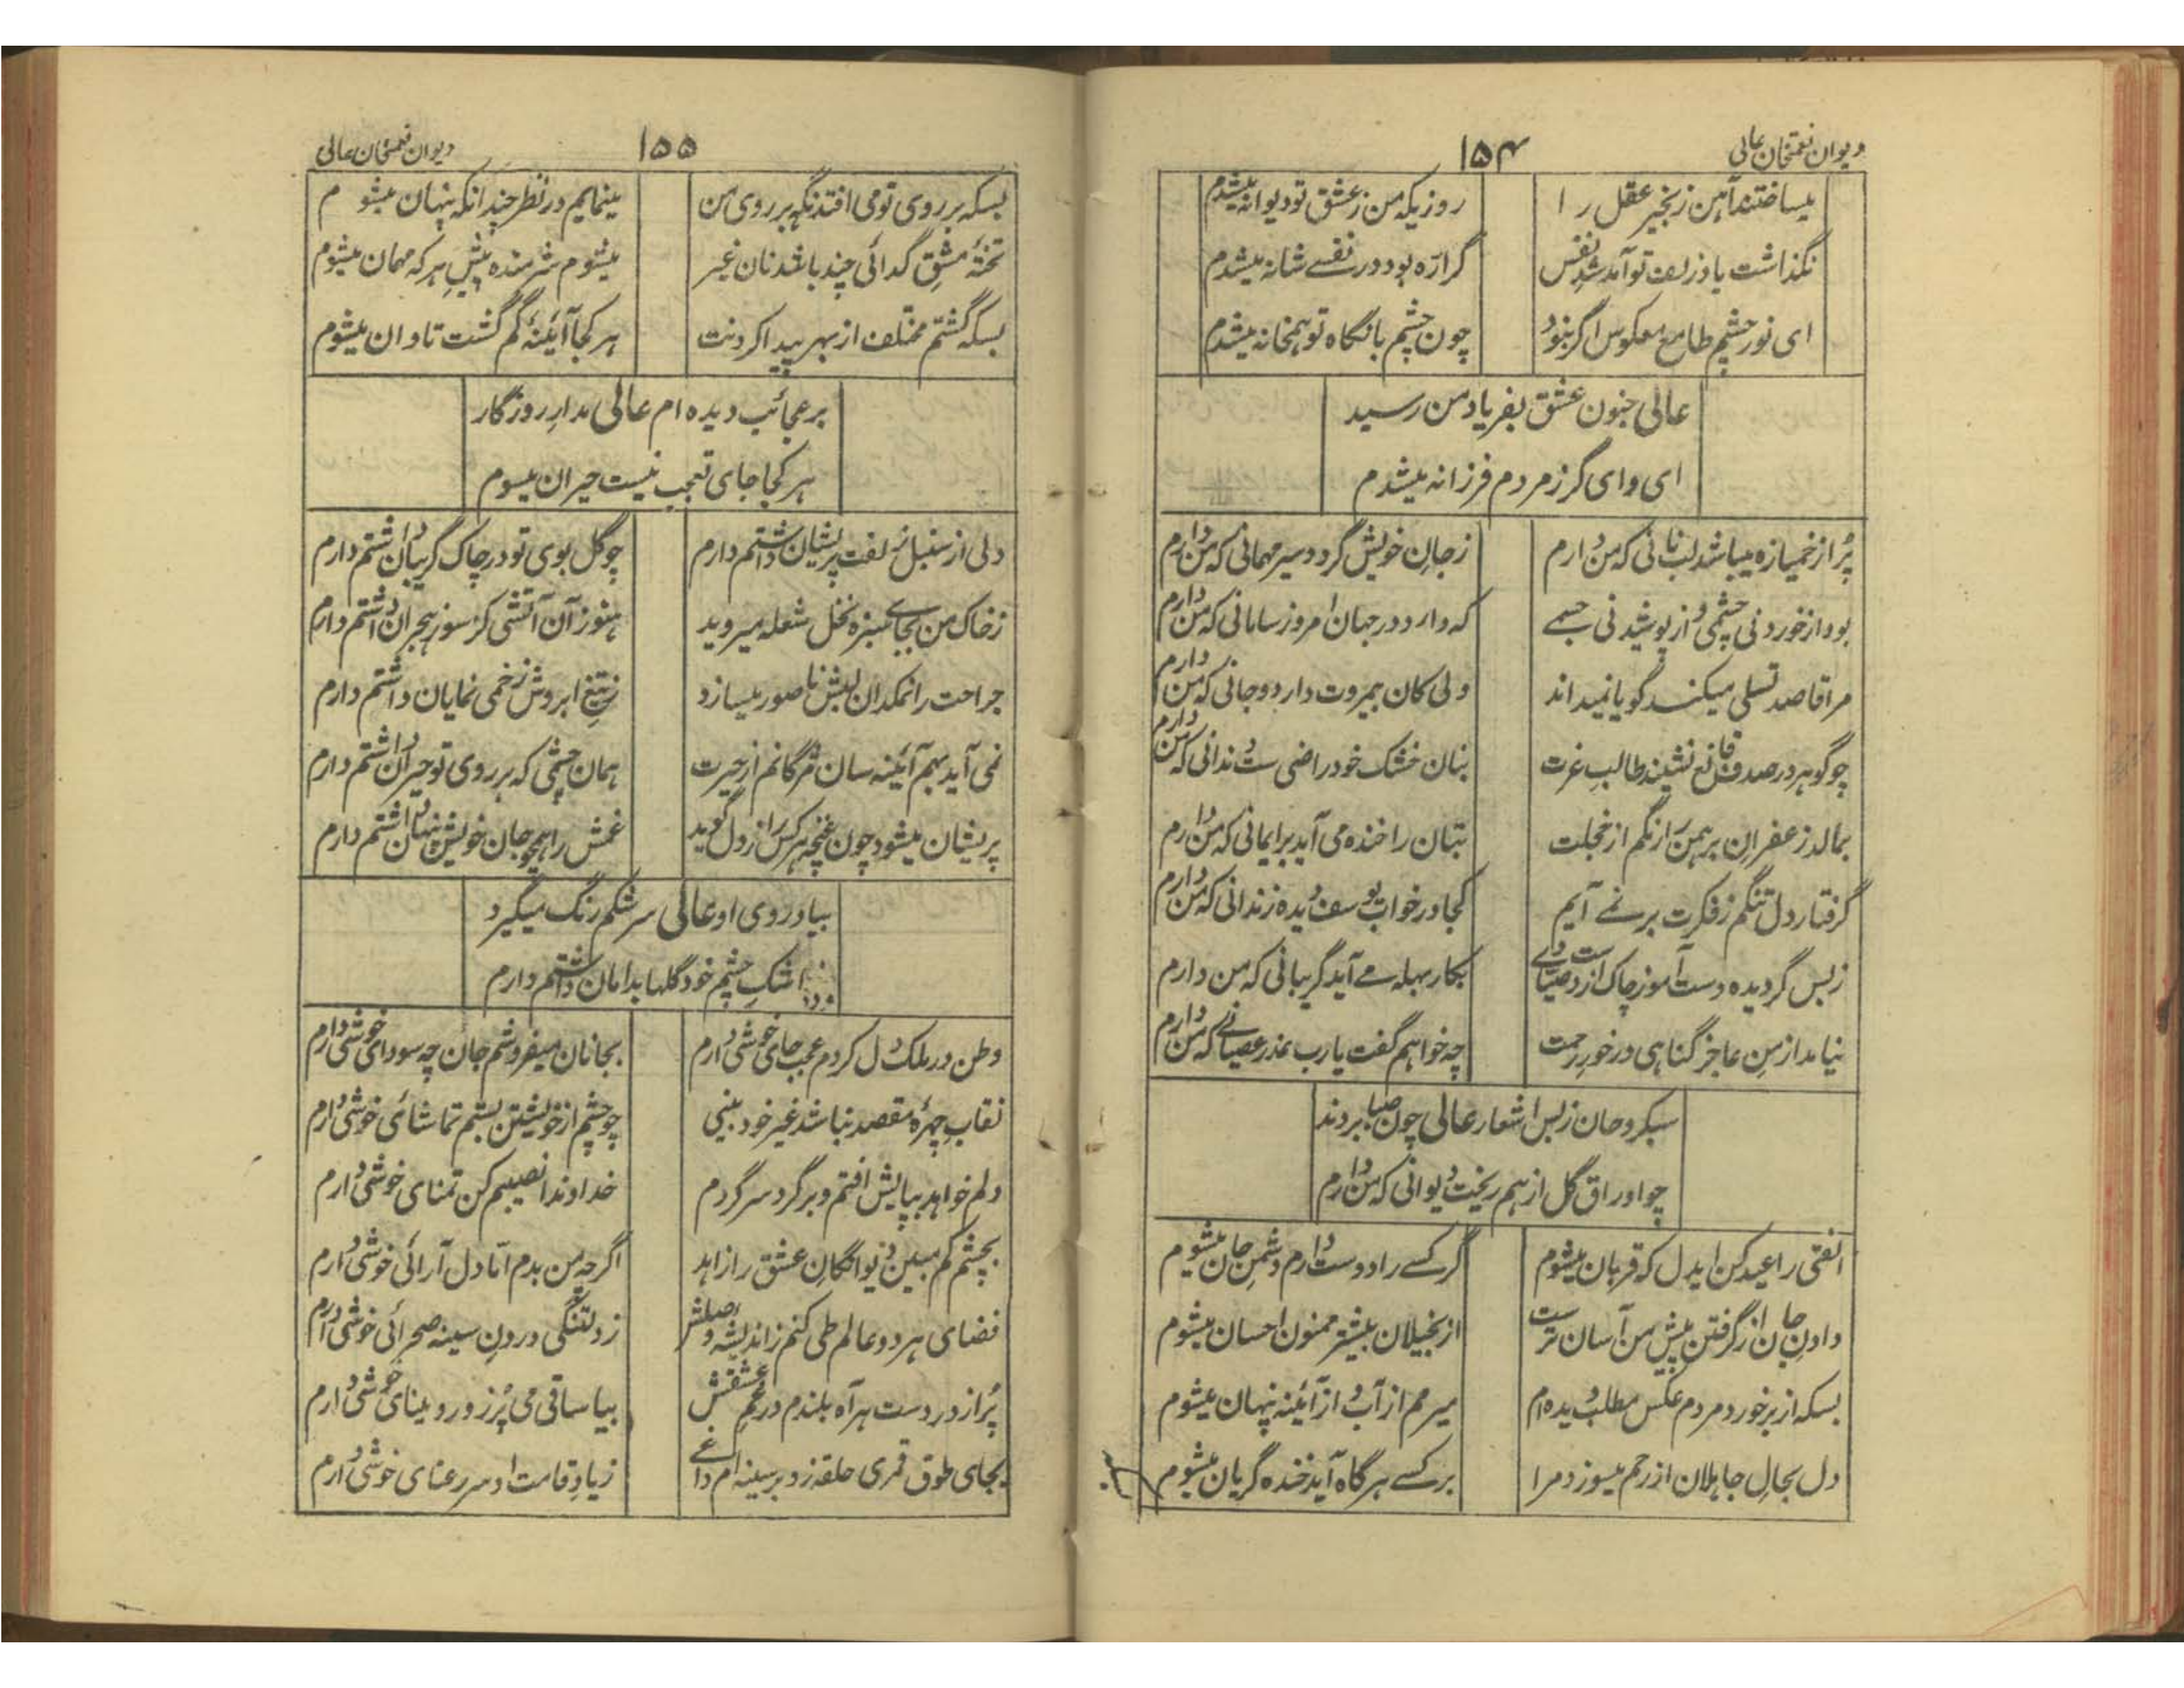 دیوان نعمتخان عالی
۱۵۴
میساختند آهن زنجیر عقل را
روزیکه من ز عشق تو دیوانه میشدم
نگذاشت یاد زلف تو آمد شد نفس
گر اره بود در نفسے شانه میشدم
ای نور چشم طامع معکوس اگر نبود
چون چشم با نگاه تو همخانه میشدم
عالی جنون عشق بفریاد من رسید
ای وای گر ز مردم فرزانه میشدم
پُر از خمیازه میباشد لب نانی که من دارم
ز جانِ خویش گردد سیر مهمانی که من دارم
بود از خوردنی چشمی و از پوشیدنی جسمے
که دارد در جهان امروز سامانی که من دارم
مرا قاصد تسلی میکند گویا نمیداند
ولی کان بیمروت دارد و جانی که من دارم
چو گوهر در صدف قانع نشیند طالبِ عزت
بنان خشک خود راضی ست دندانی که من دارم
بمالد زعفرانِ برهمن را رنگم از خجلت
بتان را خنده می آید بر ایمانی که من دارم
گرفتار دل تنگم ز فکرت بر نمے آیم
کجا در خواب یوسف دیده زندانی که من دارم
ز بس گردیده دست آموز چاک از دست
بکار بهله مے آید گریبانی که من دارم
نیامد از منِ عاجز گناهی در خورِ رحمت
چه خواهم گفت یارب عذر عصیانے که من دارم
سبکروحان ز بس اشعار عالی چون صبا بردند
چو اوراق گل از هم ریخت دیوانی که من دارم
الفتی را عید کن ایدل که قربان میشوم
گر کسے را دوست دارم دشمنِ جان میشوم
دادنِ جان از گرفتن پیش من آسان ترست
از بخیلان بیشتر ممنون احسان میشوم
بسکه از برخورد مردم عکس مطلب دیده ام
میرمم از آب و از آئینه پنهان میشوم
دل بحالِ جاهلان از رحم میسوزد مرا
بر کسے هر گاه آید خنده گریان میشوم
دیوان نعمتخان عالی
۱۵۵
بسکه بر روی تو می افتد نگه بر روی من
مینمایم در نظر چندانکه پنهان میشوم
تختهٔ مشقِ گدائی چند باشد نان غیر
میشوم شرمنده پیشِ هر که مهمان میشوم
بسکه گشتم مختلف از بهر پیدا کردنت
هر کجا آئینهٔ گم گشت تاوان میشوم
بر عجائب دیده ام عالی مدارِ روزگار
هر کجا جای تعجب نیست حیران میسوم
دلی از سنبل زلفت پریشان داشتم دارم
چو گل بوی تو در چاک گریبان داشتم دارم
ز خاک من بجاے سبزه نخل شعله میروید
هنوز آن آتشی کز سوز هجران داشتم دارم
جراحت را نمکدان لبش ناصور میسازد
ز تیغِ ابروش زخمی نمایان داشتم دارم
نمی آید بهم آئینه سان مژگانم از حیرت
همان چشمی که بر روی تو حیران داشتم دارم
پریشان میشود چون غنچه هر کس راز دل گوید
غمش را همچو جان خویش پنهان داشتم دارم
بیاد روی او عالی سرشکم رنگ میگیرد
ز اشکِ چشم خود گلها بدامان داشتم دارم
وطن در ملک دل کردم عجب جای خوشی دارم
بجانان میفروشم جان چه سودای خوشی دارم
نقابِ چهرهٔ مقصد نباشد غیر خود بینی
چو چشم از خویشتن بستم تماشائی خوشی دارم
دلم خواهد بپایش افتم و بر گرد سر گردم
خداوندا نصیبم کن تمنای خوشی دارم
بچشم کم مبین دیوانگانِ عشق را زاهد
اگر چه من بدم اما دل آرائی خوشی دارم
فضای هر دو عالم طی کنم ز اندیشهٔ وصلش
ز دلتنگی درونِ سینه صحرائی خوشی دارم
پُر از دردست هر آه بلندم در غمِ عشقش
بیا ساقی می پُر زور و مینای خوشی دارم
بجای طوق قمری حلقه زد بر سینه ام داغے
ز یادِ قامت او سرو رعنای خوشی دارم